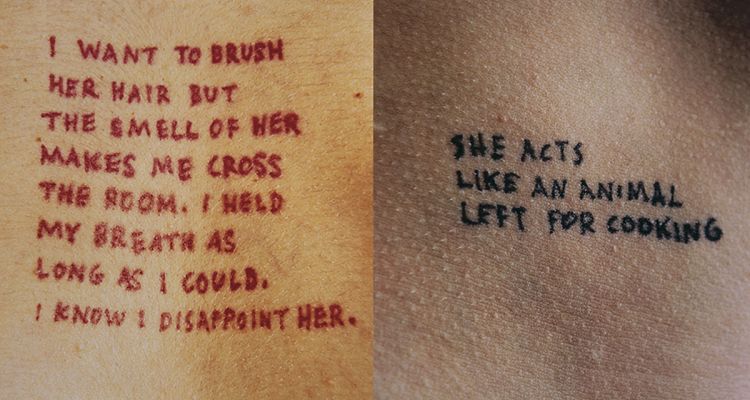 I WANT TO BRUSH
HER HAIR BUT
THE SMELL OF HER
MAKES ME CROSS
THE ROOM. I HELD
MY BREATH AS
LONG AS I COULD.
I KNOW I DISAPPOINT HER.
SHE ACTS
LIKE AN ANIMAL
LEFT FOR COOKING